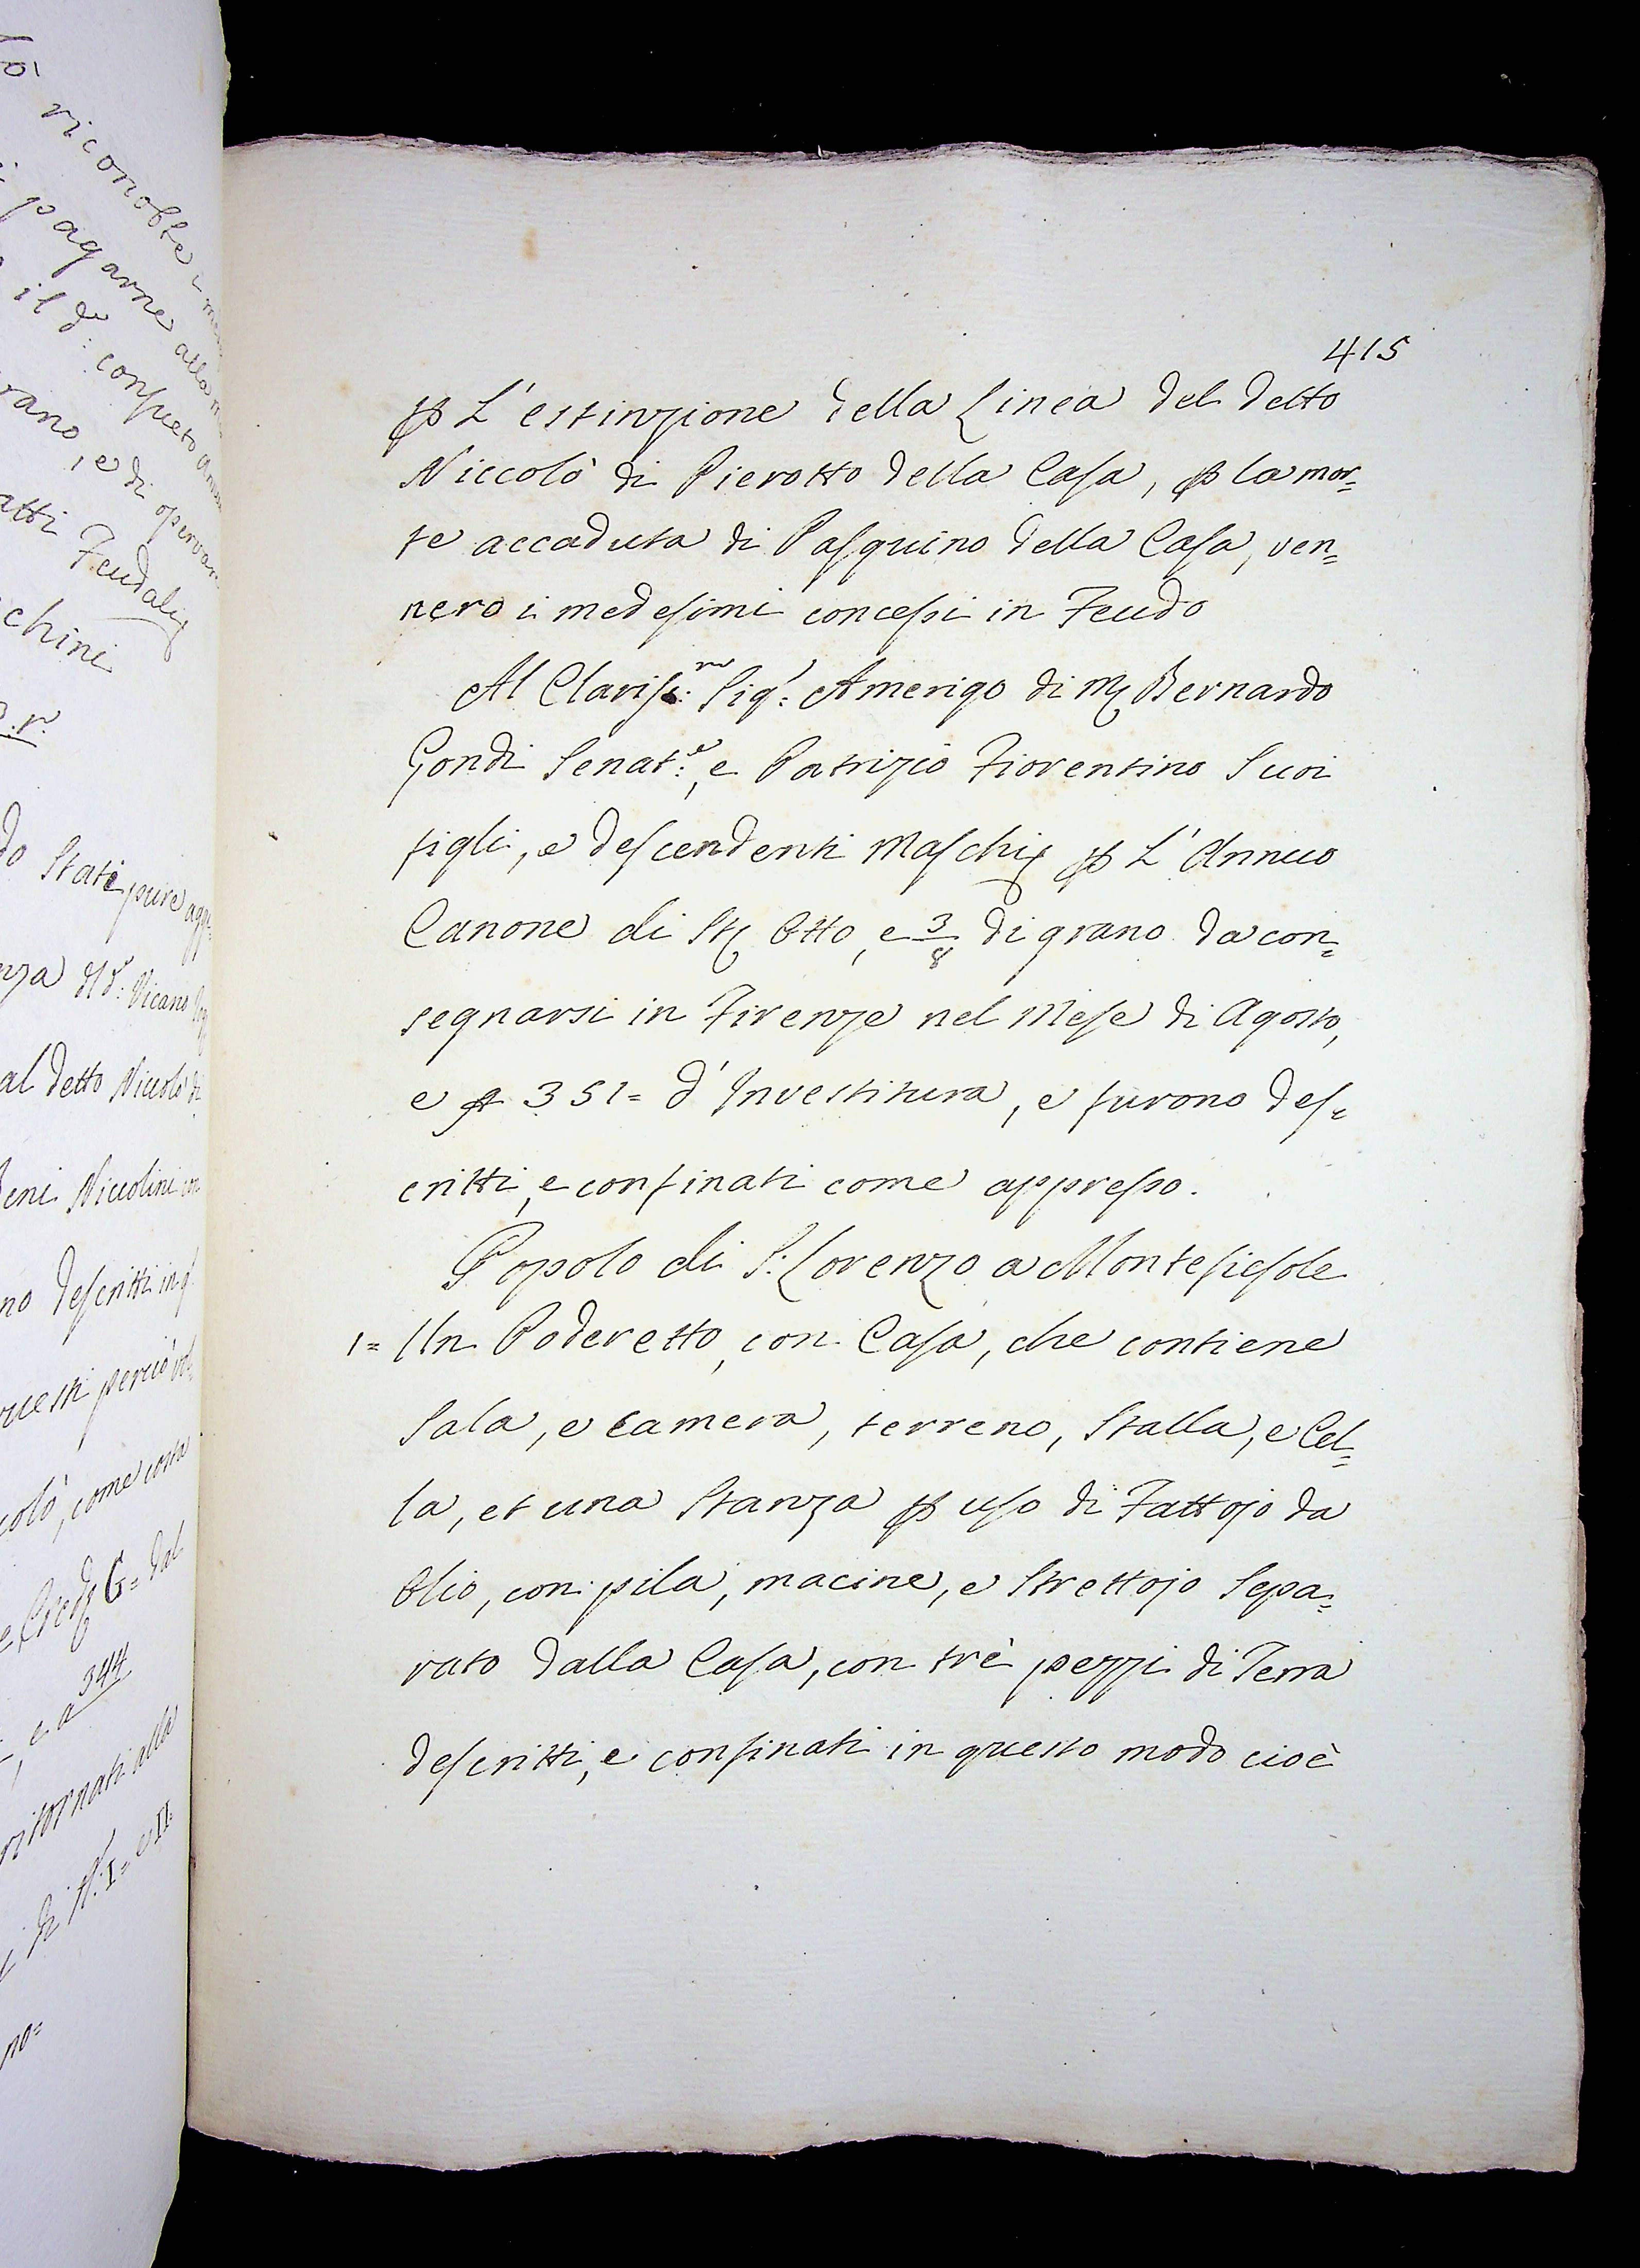 415
ꝑ L'estinzione della Linea del detto
Niccolò di Pierotto della Casa, ꝑ la mor=
te accaduta di Pasquino della Casa, ven=
nero i medesimi concessi in Feudo
Al Clariss:mo Sig:r Amerigo di M Bernardo
Gondi Senat:e, e Patrizio Fiorentino Suoi
figli, e descendenti Maschi ꝑ L'Annuo
Canone di St Otto, e 3/8 di grano da con=
segnarsi in Firenze nel Mese di Agosto,
e 351= d'Investitura, e furono des=
critti, e confinati come appresso.
Popolo di S: Lorenzo a Montefiesole
1= Un Poderetto, con Casa, che contiene
Sala, e camera, terreno, Stalla, e Cel=
la, et una Stanza ꝑ uso di Fattojo da
Olio, con pila, macine, e Strettojo Sepa=
rato dalla Casa, con trè pezzi di Terra
descritti, e confinati in questo modo cioè
riconobbe
pagarne alla
il d:o consueto
e di
Feudali
chini
do Stati pure
nza d:o Vicario
al detto Niccolò di
Beni Niccolini
no descritti in
questi perciò
colò, come costa
G= dal
e a 344
ritornati alla
I= e II=
no=